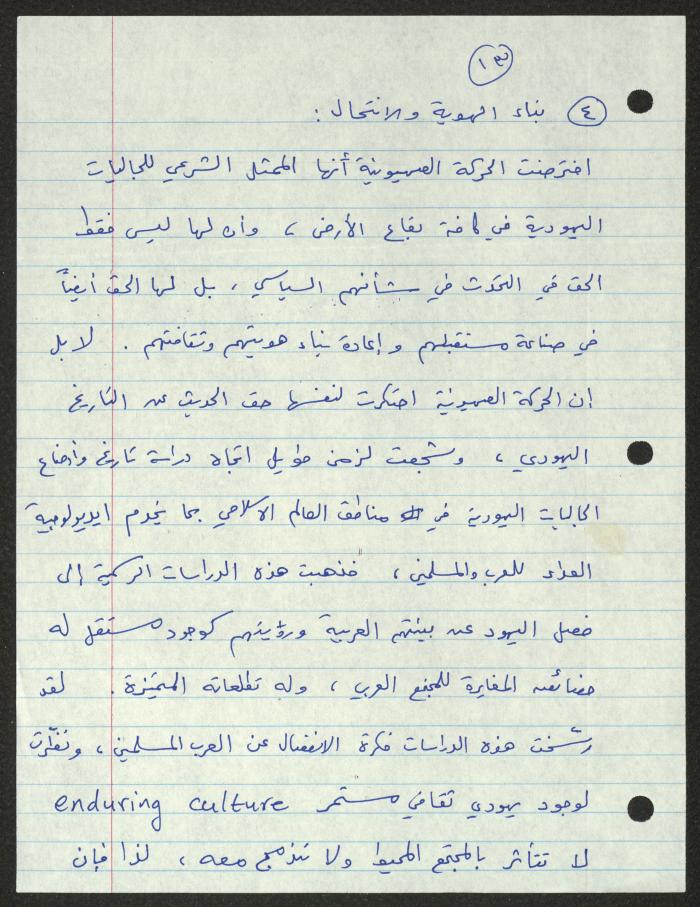 ١٣
٤ بناء الهوية والانتحال :
افترضت الحركة الصهيونية أنها الممثل الشرعي للجاليات
اليهودية في كافة بقاع الأرض ، وأن لها ليس فقط
الحق في التحدث في شأنهم السياسي ، بل لها الحق أيضاً
في صناعة مستقبلهم وإعادة بناء هويتهم وثقافتهم . لا بل
إن الحركة الصهيونية احتكرت لنفسها حق الحديث عن التاريخ
اليهودي ، وشجعت لزمن طويل اتجاه دراسة تاريخ وأوضاع
الجاليات اليهودية في مناطق العالم الاسلامي بما يخدم ايديولوجية
العداء للعرب والمسلمين ، فذهبت هذه الدراسات الرسمية إلى
فصل اليهود عن بيئتهم العربية ورؤيتهم كوجود مستقل له
خصائصه المغايرة للمجتمع العربي ، وله تطلعاته المتميزة . لقد
رسّخت هذه الدراسات فكرة الانفصال عن العرب المسلمين ، ونظّرت
لوجود يهودي ثقافي مستمر enduring culture
لا تتأثر بالمجتمع المحيط ولا تندمج معه ، لذا فإن